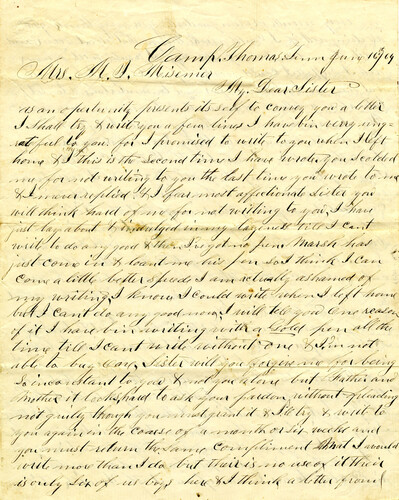 Camp Thomas Tenn June 16th /64
Mrs. M. J. Misemer
My. Dear Sister
as an opertunity presents its self to convey you a letter
I shall try & write you a few lines I have bin very ungra-
tfull to you. for I promised to write to you when I left
home & this is the second time I have wrote you scolded
me for not writing to you the last time you wrote to me
& I never replied & I fear most affectionate Sister you
will think hard of me for not writing to you. I have
just lay about & indulged in my laziness till I cant
write to do any good & then I is got no pen Marsh has
just come in & loant me his pen so I think I can
come a little better speede I am actually ashamed of
my writing I know I could write when I left home
but I cant do any good now. I will tell you one reason
of it I have bin writing with a Gold pen all the
time till I cant write without one & I'm not
able to buy one, Sister will you forgive me for being
so inconstant to you, & not you alone but Father and
Mother it looks hard to ask your pardon without pleading
not guilty though you must grant it & I'll try & write to
you again in the course of a month or six weeks and
you must return the same compliment I would
write more than I do but their is no use of it their
is only six of us boys here & I think a letter from